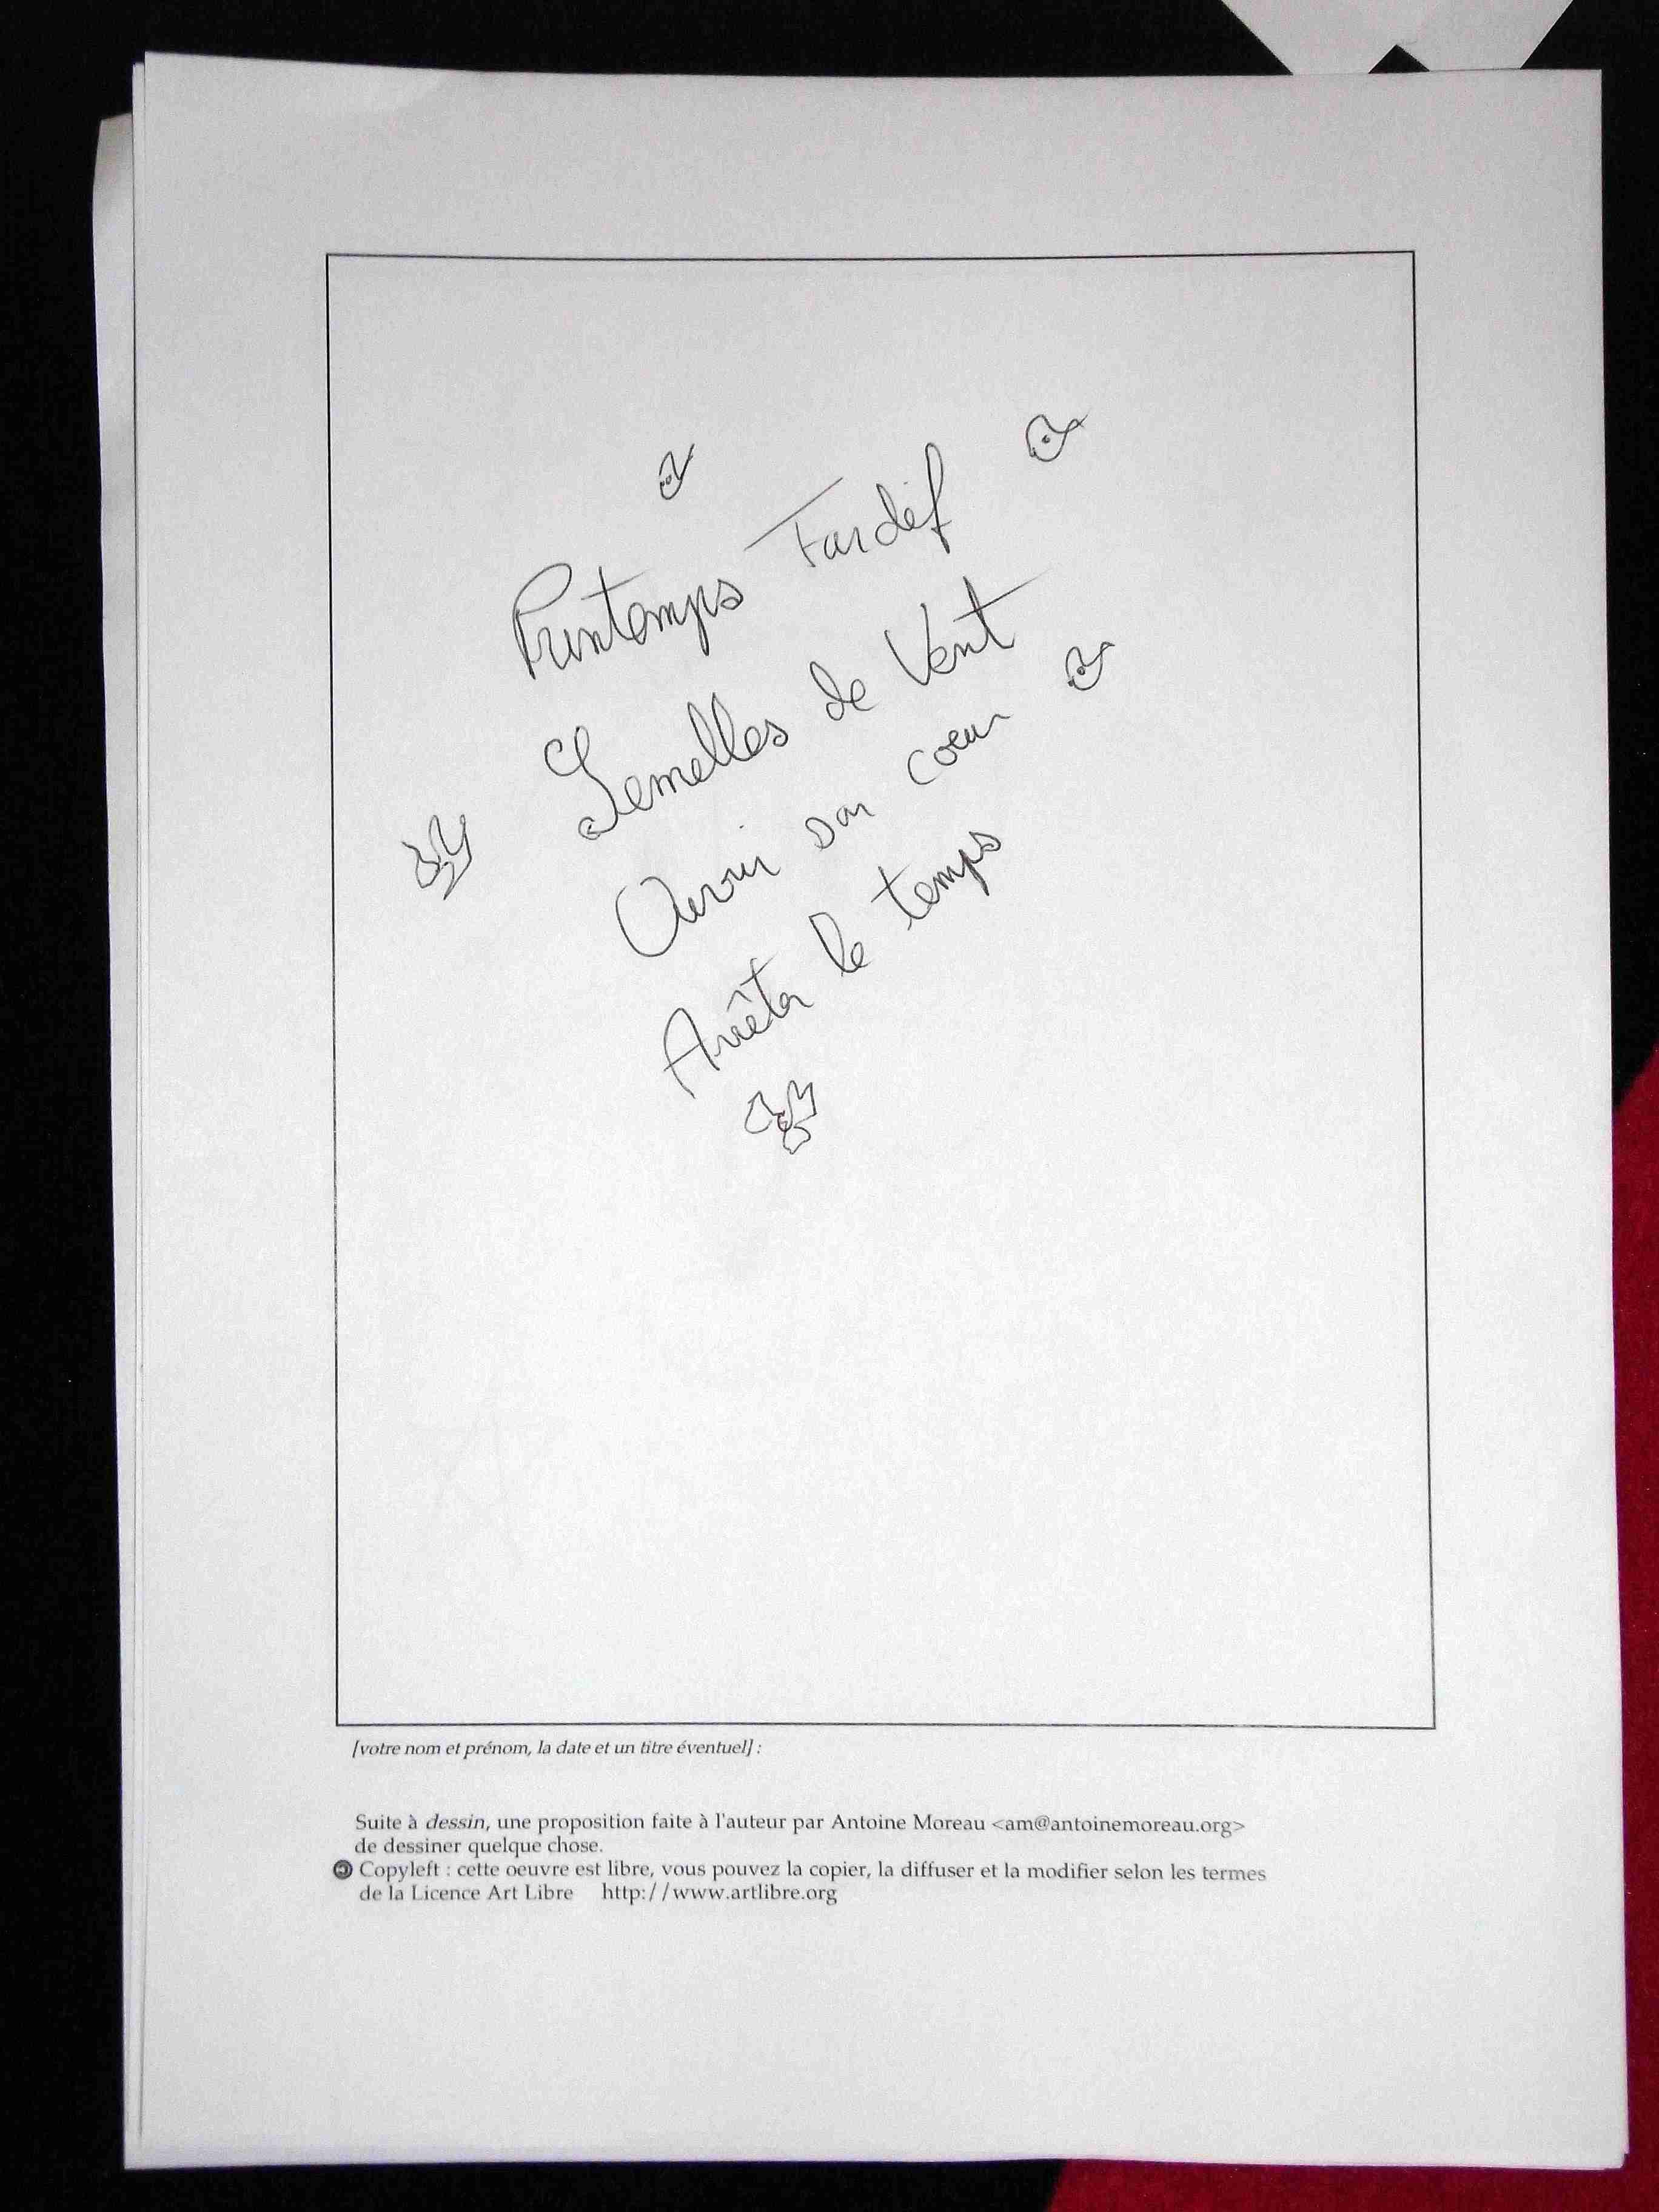 Printemps Tardif
Semelles de Vent
Ouvrir son coeur
Arrêter le temps
[votre nom et prénom, la date et un titre éventuel] :
Suite à dessin, une proposition faite à l'auteur par Antoine Moreau <am@antoinemoreau.org>
de dessiner quelque chose.
Copyleft : cette oeuvre est libre, vous pouvez la copier, la diffuser et la modifier selon les termes
de la Licence Art Libre http://www.artlibre.org